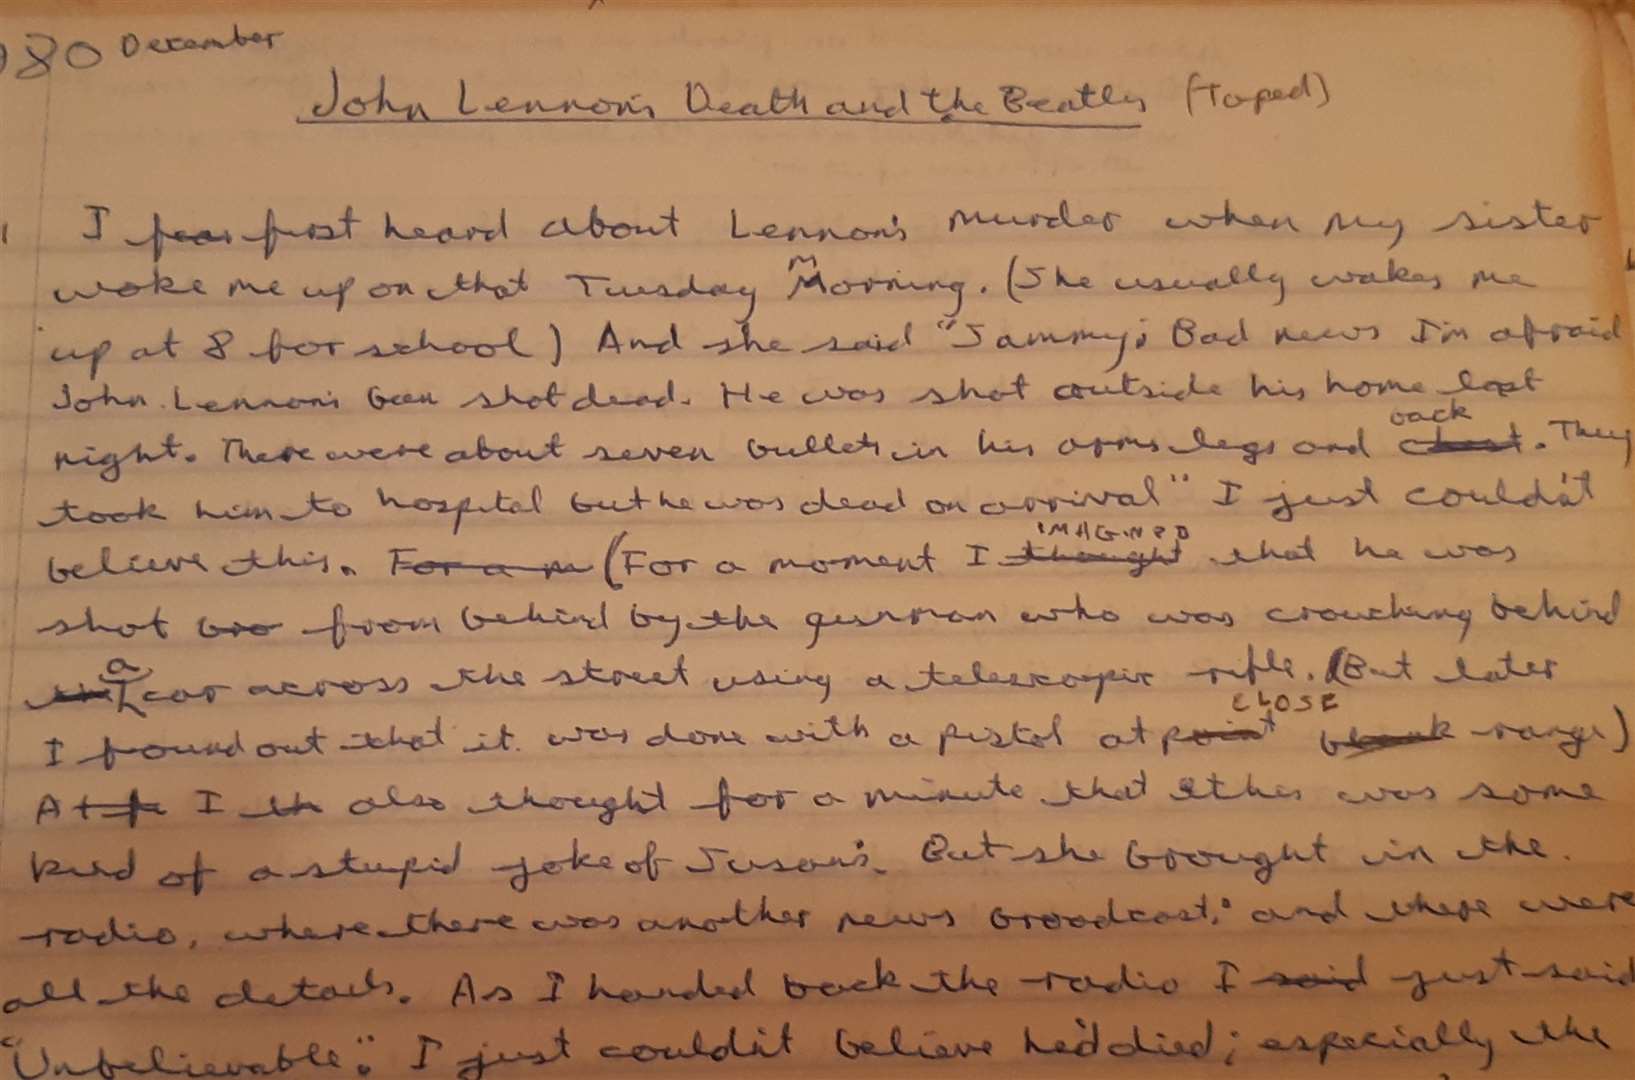 980 December
John Lennon's Death and the Beatles (Taped)
I fear first heard about Lennon's murder when my sister
woke me up on that Tuesday Morning. (She usually wakes me
up at 8 for school) And she said "Sammy; Bad news I'm afraid
John Lennon's been shot dead. He was shot outside his home last
night. There were about seven bullets in his arms legs and chest back. They
took him to hospital but he was dead on arrival" I just couldn't
believe this. For a m (For a moment I thought IMAGINED that he was
shot from behind by the gunman who was crouching behind
a car across the street using a telescopic rifle. (But later
I found out that it was done with a pistol at point blank CLOSE range)
At I th also thought for a minute that this was some
kind of a stupid joke of Susan's. But she brought in the
radio, where there was another news broadcast; and there were
all the details. As I handed back the radio I said just said
"Unbelievable". I just couldn't believe he'd died; especially the